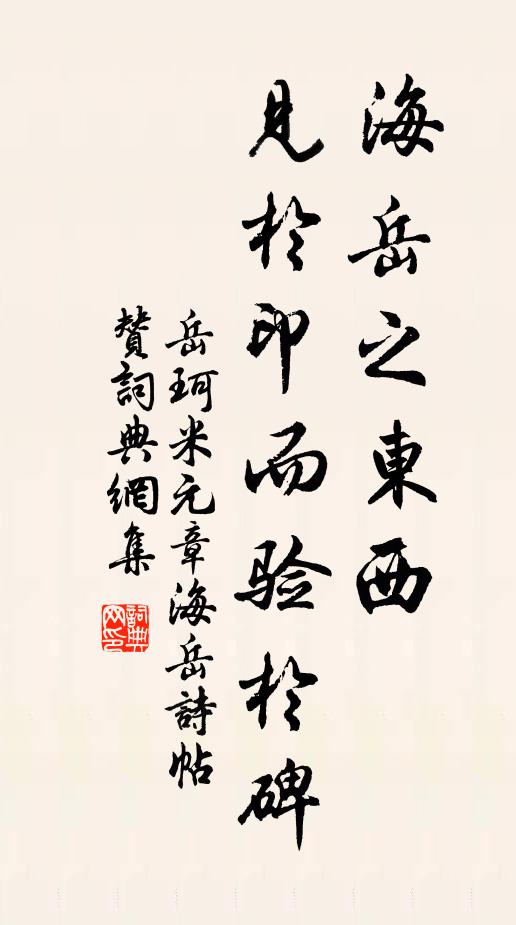 海岳之東西
見於印而验於碑
岳珂米元章海岳詩帖
贊詞典網集
詞典网印